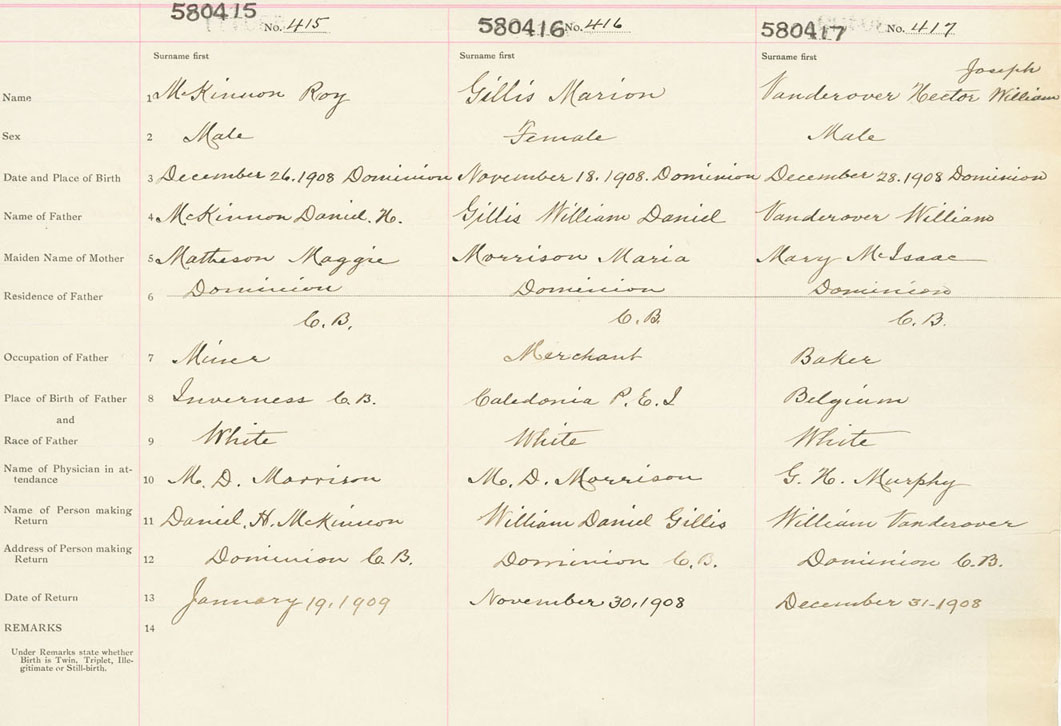 580415 No. 415 580416 No. 416 580417 No. 417
Surname first Surname first Surname first
Joseph
Name 1 McKinnon Roy Gillis Marion Vanderover Hector William
Sex 2 Male Female Male
Date and Place of Birth 3 December 26, 1908 Dominion November 18, 1908. Dominion December 28, 1908 Dominion
Name of Father 4 McKinnon Daniel. H. Gillis William Daniel Vanderover William
Maiden Name of Mother 5 Matheson Maggie Morrison Maria Mary McIsaac
Residence of Father 6 Dominion Dominion Dominion
C.B. C.B. C.B.
Occupation of Father 7 Miner Merchant Baker
Place of Birth of Father 8 Inverness C.B. Caledonia P.E.I Belgium
and
Race of Father 9 White White White
Name of Physician in at-
tendance 10 M. D. Morrison M. D. Morrison G. H. Murphy
Name of Person making
Return 11 Daniel. H. McKinnon William Daniel Gillis William Vanderover
Address of Person making
Return 12 Dominion C.B. Dominion C.B. Dominion C.B.
Date of Return 13 January 19, 1909 November 30, 1908 December 31-1908
REMARKS 14
Under Remarks state whether
Birth is Twin, Triplet, Ille-
gitimate or Still-birth.